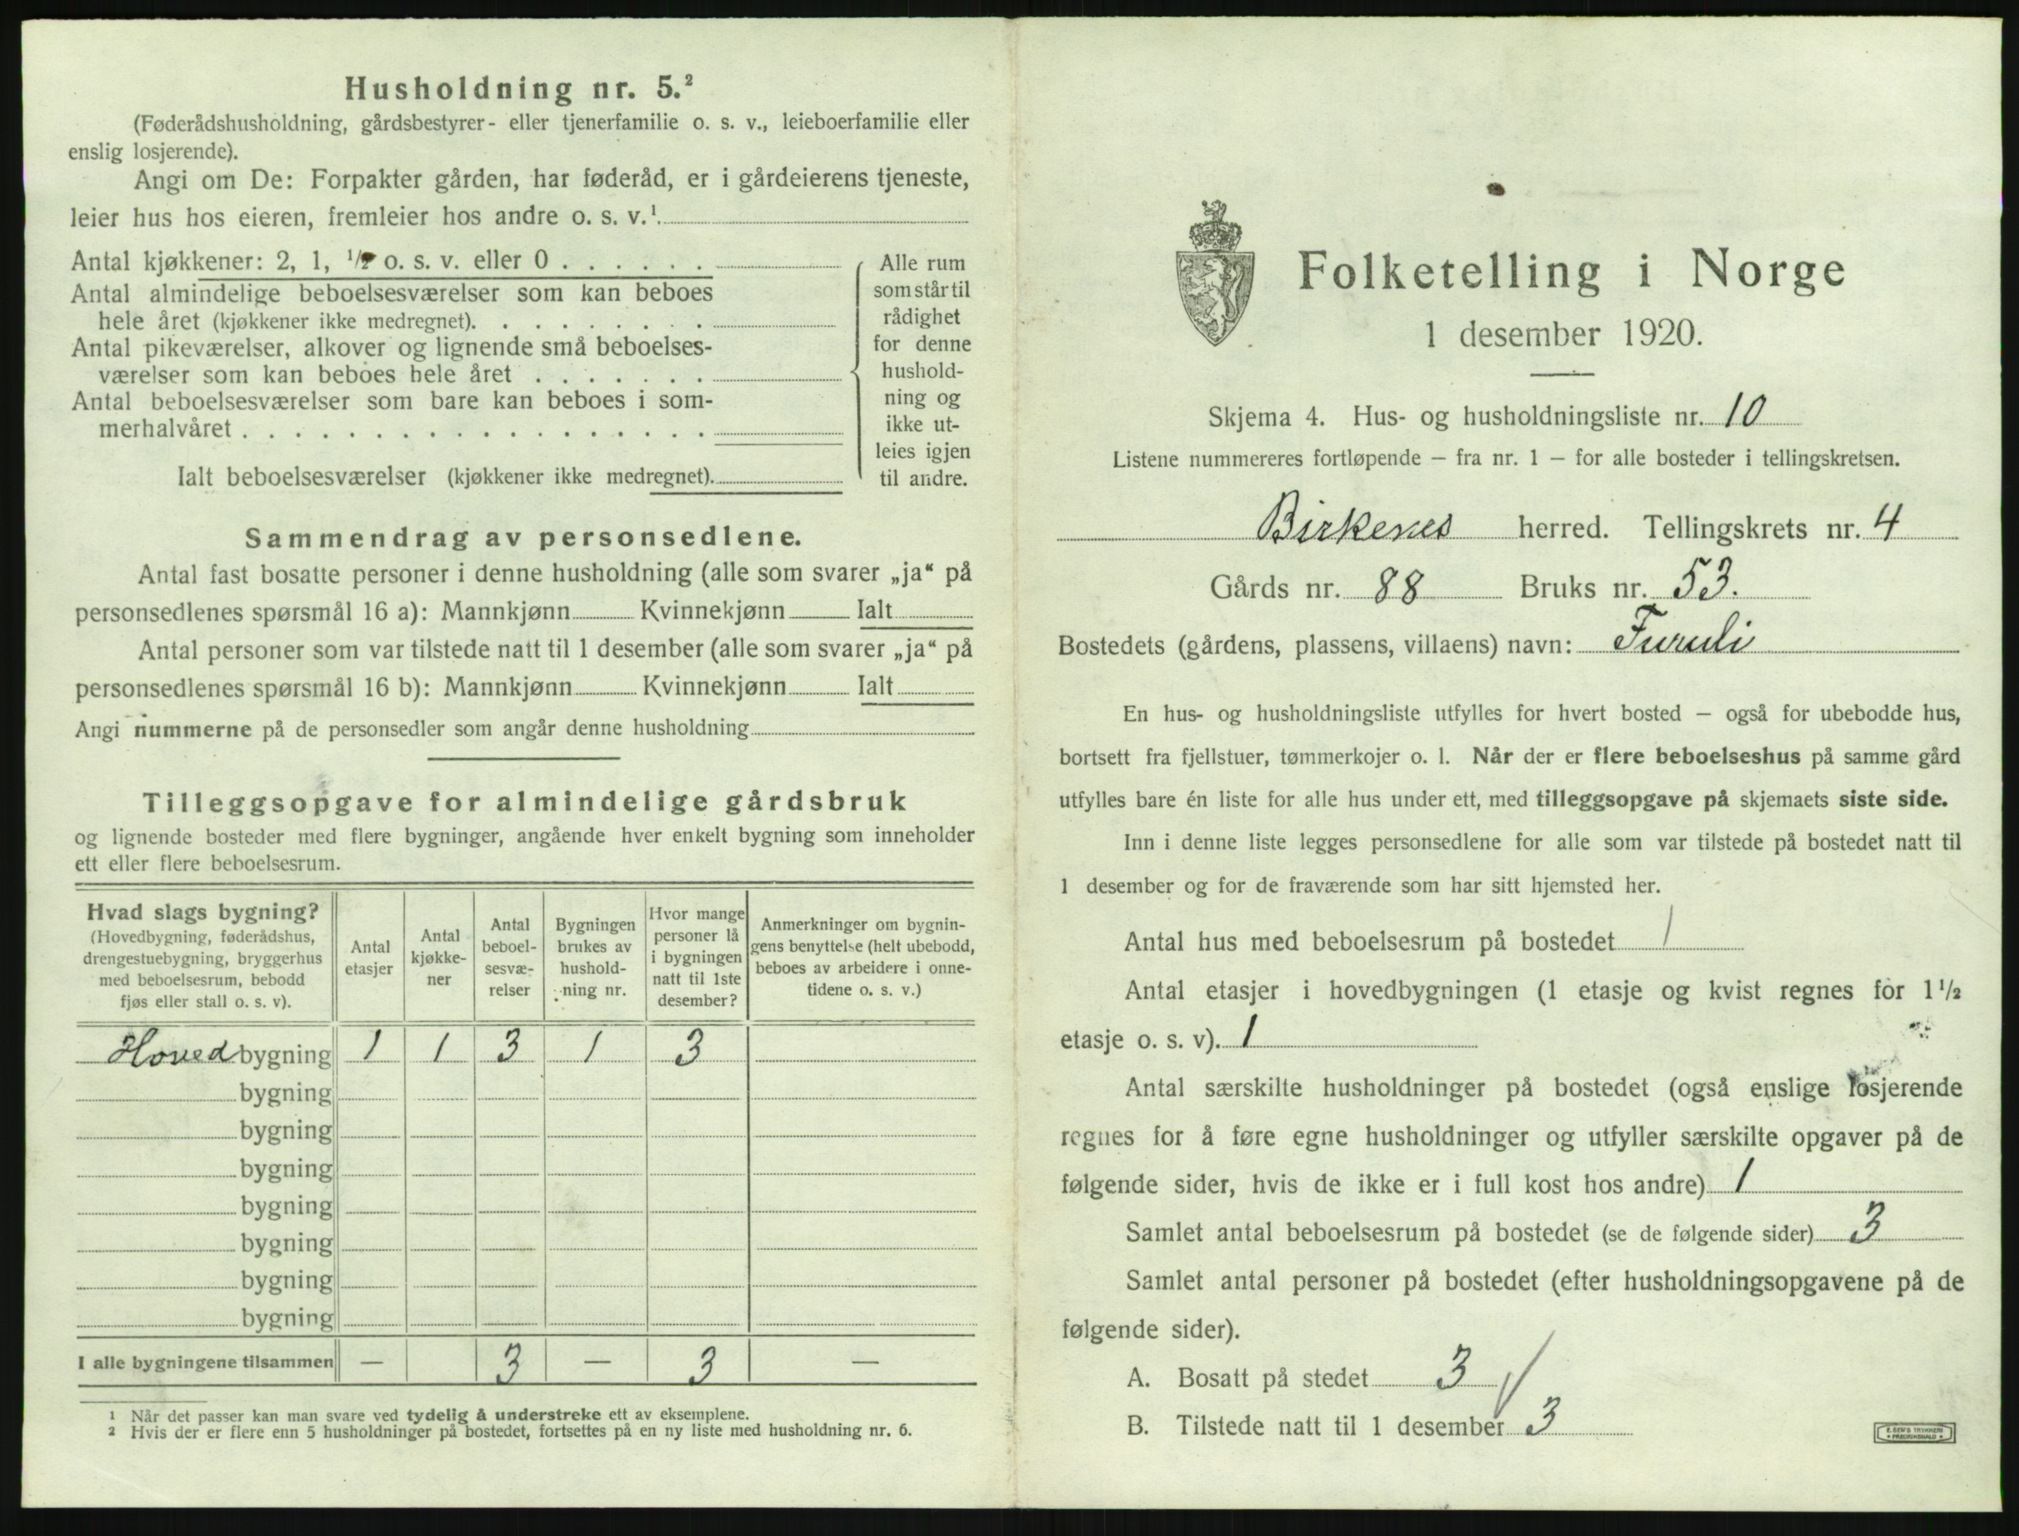 Husholdning nr. 5.²
(Føderådshusholdning, gårdsbestyrer- eller tjenerfamilie o. s. v., leieboerfamilie eller
enslig losjerende).
Angi om De: Forpakter gården, har føderåd, er i gårdeierens tjeneste,
leier hus hos eieren, fremleier hos andre o. s. v.¹
Antal kjøkkener: 2, 1, ½ o. s. v. eller 0 . . . . . .
Antal almindelige beboelsesværelser som kan beboes
hele året (kjøkkener ikke medregnet). . . . . . . . .
Antal pikeværelser, alkover og lignende små beboelses-
værelser som kan beboes hele året . . . . . . .
Antal beboelsesværelser som bare kan beboes i som-
merhalvåret . . . . . . . . . . . . . . . . . .
Ialt beboelsesværelser (kjøkkener ikke medregnet).
Alle rum
som står til
rådighet
for denne
hushold-
ning og
ikke ut-
leies igjen
til andre.
Sammendrag av personsedlene.
Antal fast bosatte personer i denne husholdning (alle som svarer „ja“ på
personsedlenes spørsmål 16 a): Mannkjønn Kvinnekjønn Ialt
Antal personer som var tilstede natt til 1 desember (alle som svarer „ja“ på
personsedlenes spørsmål 16 b): Mannkjønn Kvinnekjønn Ialt
Angi nummerne på de personsedler som angår denne husholdning
Tilleggsopgave for almindelige gårdsbruk
og lignende bosteder med flere bygninger, angående hver enkelt bygning som inneholder
ett eller flere beboelsesrum.
Hvad slags bygning?
(Hovedbygning, føderådshus,
drengestuebygning, bryggerhus
med beboelsesrum, bebodd
fjøs eller stall o. s. v).
Antal
etasjer
Antal
kjøkke-
ner
Antal
beboel-
sesvæ-
relser
Bygningen
brukes av
hushold-
ning nr.
Hvor mange
personer lå
i bygningen
natt til 1ste
desember?
Anmerkninger om bygnin-
gens benyttelse (helt ubebodd,
beboes av arbeidere i onne-
tidene o. s. v.)
Hoved bygning 1 1 3 1 3
bygning
bygning
bygning
bygning
bygning
bygning
bygning
I alle bygningene tilsammen — 3 — 3 —
¹ Når det passer kan man svare ved tydelig å understreke ett av eksemplene.
² Hvis der er flere enn 5 husholdninger på bostedet, fortsettes på en ny liste med husholdning nr. 6.
Folketelling i Norge
1 desember 1920.
Skjema 4. Hus- og husholdningsliste nr. 10
Listene nummereres fortløpende — fra nr. 1 — for alle bosteder i tellingskretsen.
Birkenes herred. Tellingskrets nr. 4
Gårds nr. 88 Bruks nr. 53.
Bostedets (gårdens, plassens, villaens) navn: Furuli
En hus- og husholdningsliste utfylles for hvert bosted — også for ubebodde hus,
bortsett fra fjellstuer, tømmerkojer o. l. Når der er flere beboelseshus på samme gård
utfylles bare én liste for alle hus under ett, med tilleggsopgave på skjemaets siste side.
Inn i denne liste legges personsedlene for alle som var tilstede på bostedet natt til
1 desember og for de fraværende som har sitt hjemsted her.
Antal hus med beboelsesrum på bostedet 1
Antal etasjer i hovedbygningen (1 etasje og kvist regnes for 1½
etasje o. s. v). 1
Antal særskilte husholdninger på bostedet (også enslige losjerende
regnes for å føre egne husholdninger og utfyller særskilte opgaver på de
følgende sider, hvis de ikke er i full kost hos andre) 1
Samlet antal beboelsesrum på bostedet (se de følgende sider) 3
Samlet antal personer på bostedet (efter husholdningsopgavene på de
følgende sider).
A. Bosatt på stedet 3
B. Tilstede natt til 1 desember 3
E. SEM'S TRYKKERI
FREDRIKSHALD